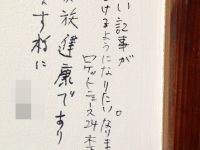 い記事が
けるようになりたい。なりま
ロケットニュース24
族健康であり
す様に